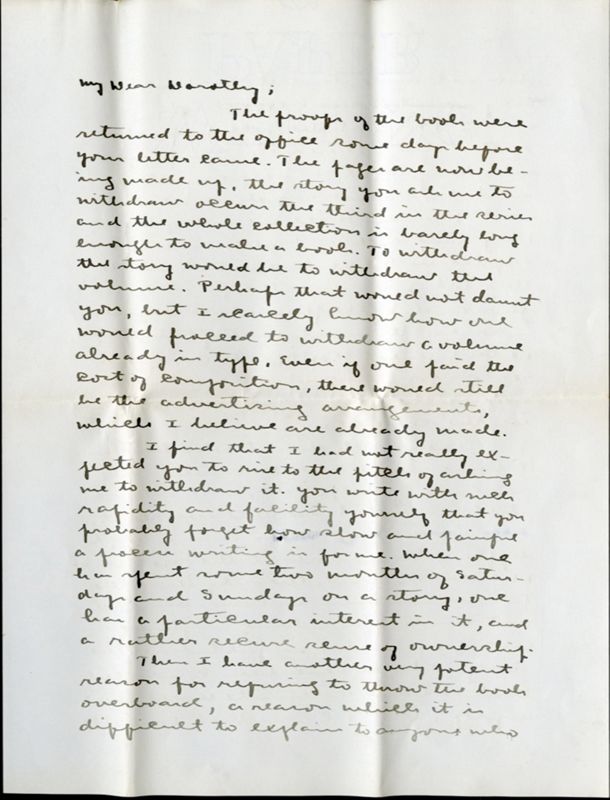 My Dear Dorothy;
The proofs of the book were
returned to the office some days before
your letter came. The pages are now be-
ing made up, the story you ask me to
withdraw occurs the third in the series
and the whole collection is barely long
enough to make a book. To withdraw
the story would be to withdraw the
volume. Perhaps that would not daunt
you, but I scarcely know how one
would proceed to withdraw a volume
already in type. Even if one paid the
cost of composition, there would still
be the advertising arrangements,
which I believe are already made.
I find that I had not really ex-
pected you to rise to the pitch of asking
me to withdraw it. you write with such
rapidity and facility yourself that you
probably forget how slow and painful
a process writing is for me. When one
has spent some two months of Satur-
days and Sundays on a story, one
has a particular interest in it, and
a rather secure sense of ownership.
Then I have another very potent
reason for refusing to throw the book
overboard, a reason which it is
difficult to explain to anyone who